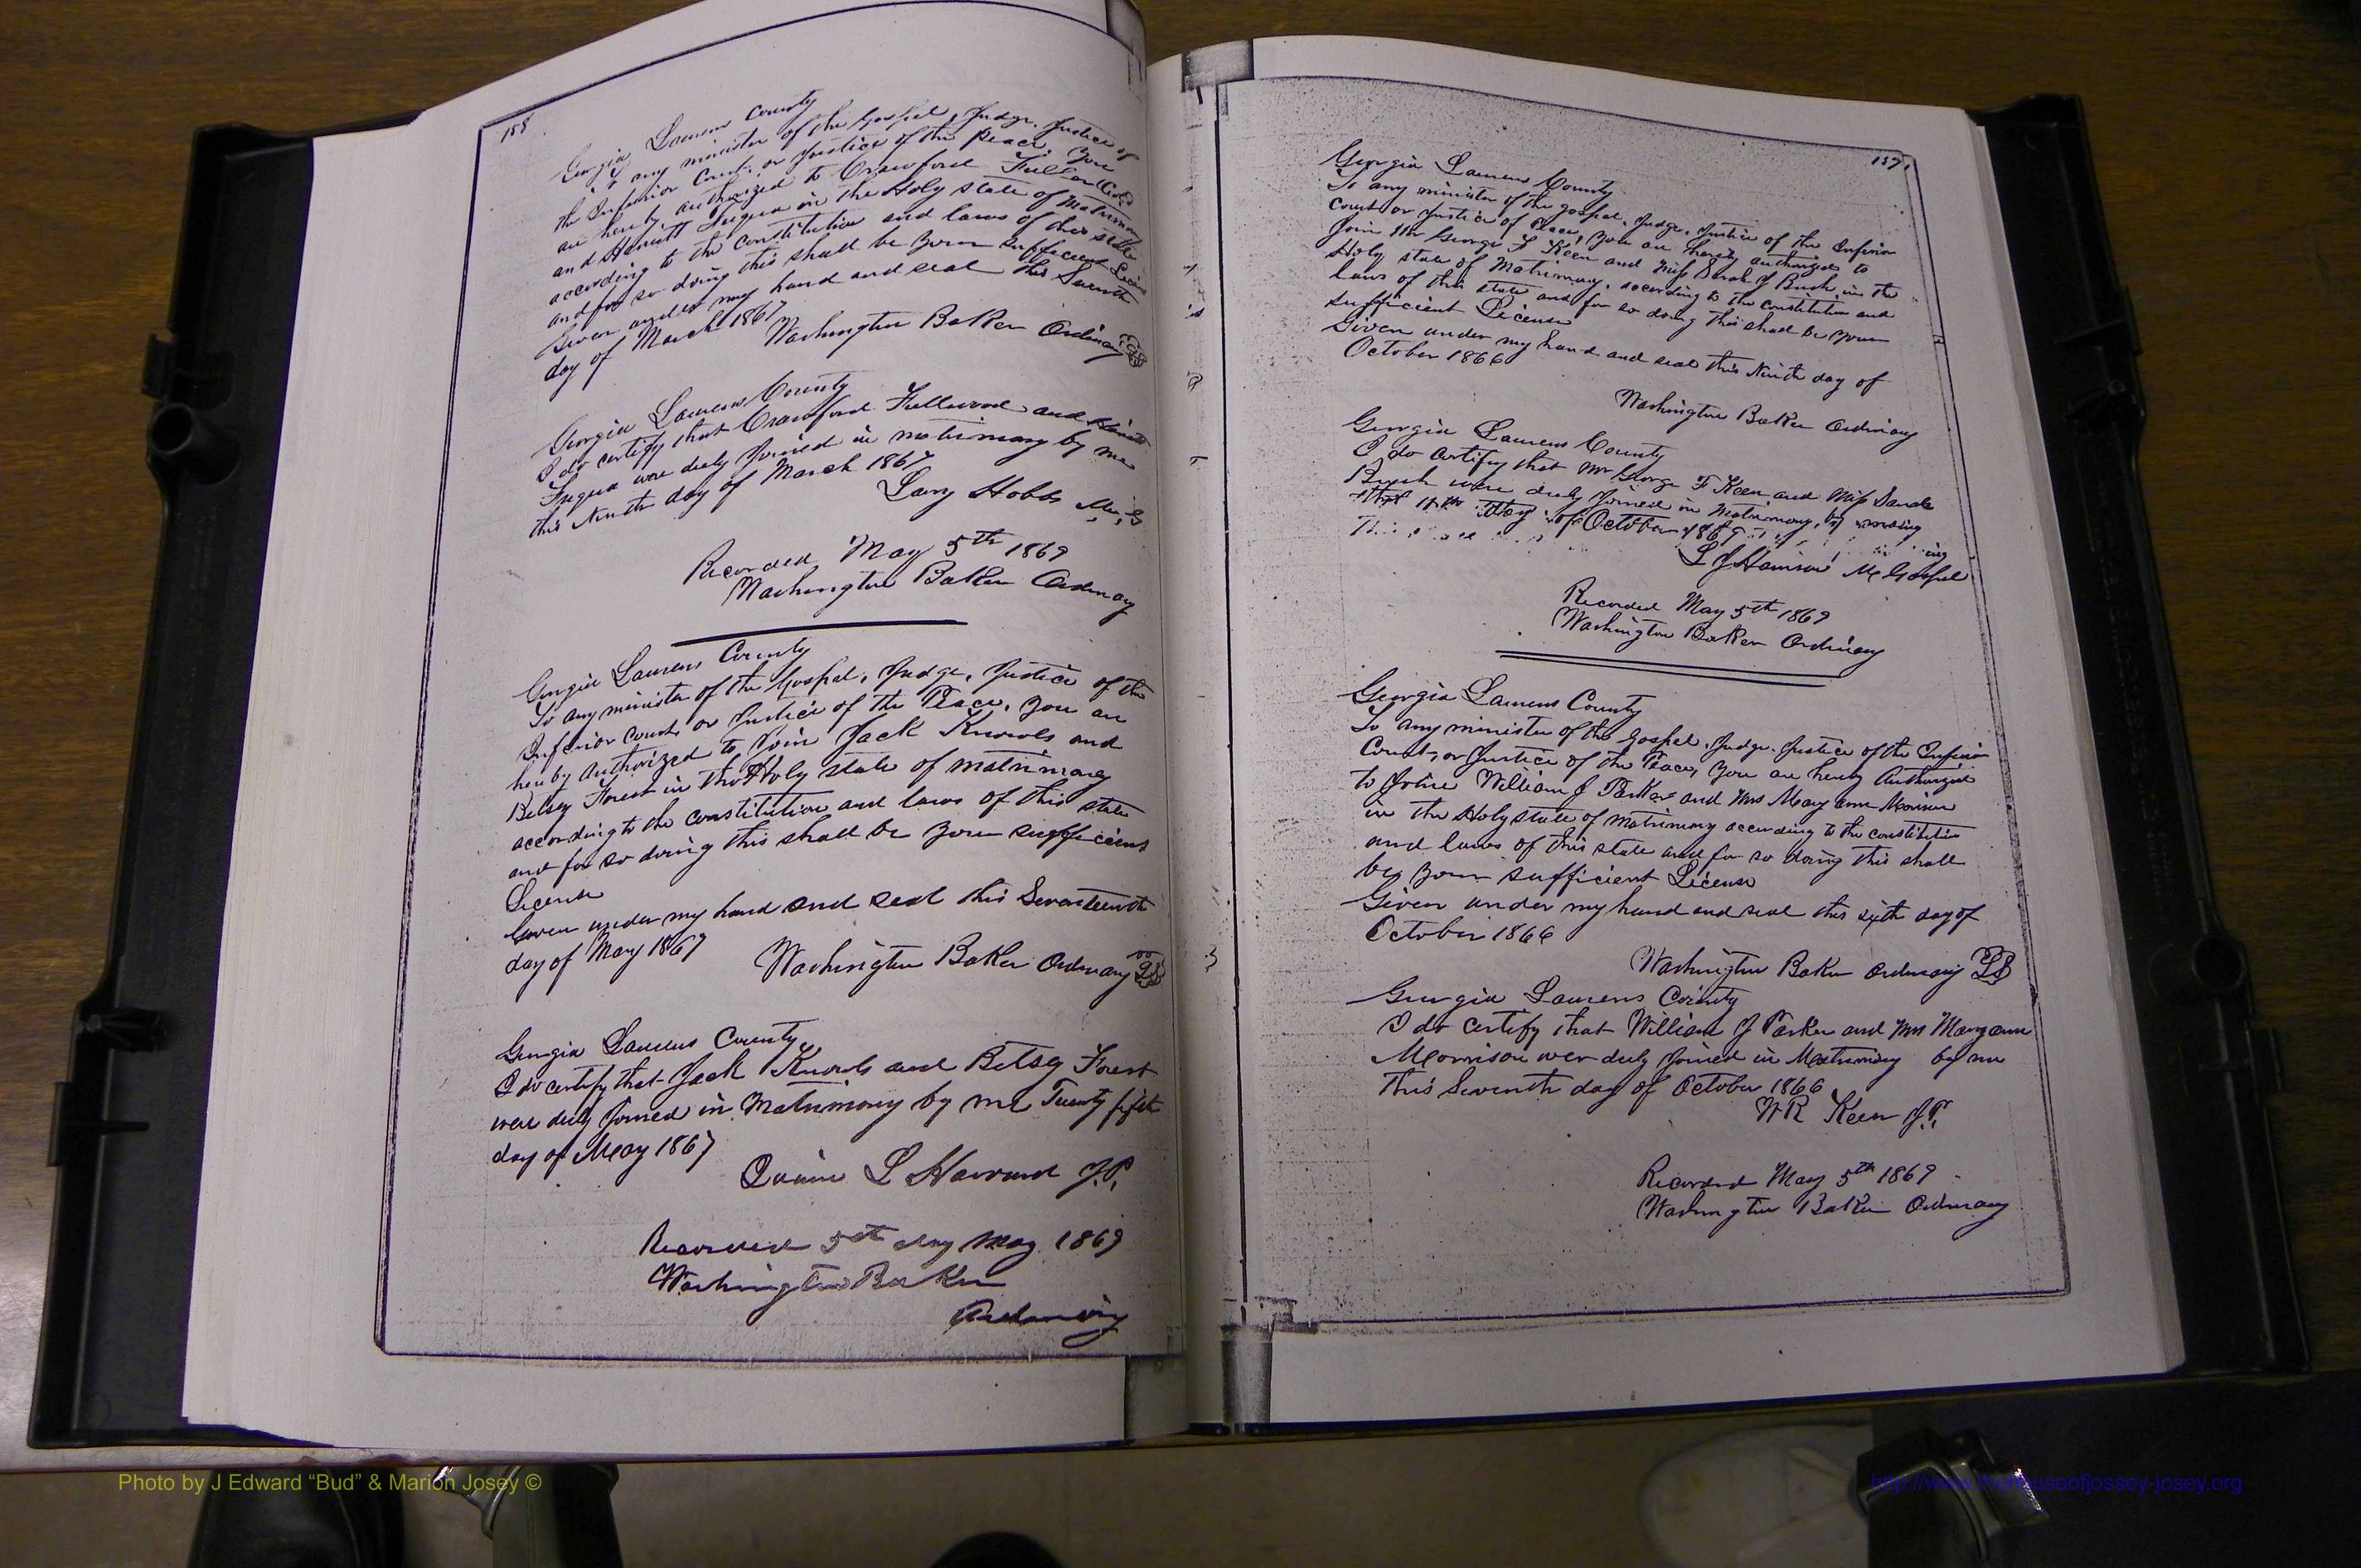 158
Georgia Laurens County
To any minister of the Gospel, Judge, Justice of
the Inferior Court, or Justice of the Peace, you
are hereby authorized to Crawford
and Fuqua in the Holy state of Matrimony
according to the constitution and laws of this state
and for so doing this shall be your sufficient
Given under my hand and seal this Seventh
day of March 1867
Washington Baker Ordinary
Georgia Laurens County
I do certify that Crawford Fullwood and
Fuqua were duly Joined in matrimony by me
this Ninth day of March 1867
Lary Hobbs M, G
Recorded May 5th 1869
Washington Baker Ordinary
Georgia Laurens County
To any minister of the Gospel, Judge, Justice of the
Inferior Court, or Justice of the Peace, you are
hereby authorized to Join Jack Knowls and
Betsey Forest in the Holy state of matrimony
according to the constitution and laws of this state
and for so doing this shall be your sufficient
License
Given under my hand and seal this Seventeenth
day of May 1867
Washington Baker Ordinary LS
Georgia Laurens County
I do certify that Jack Knowls and Betsey Forest
were duly Joined in Matrimony by me Twenty fifth
day of May 1867
L J.P.
Recorded 5th day May 1869
Washington Baker
Ordinary
159
Georgia Laurens County
To any minister of the gospel, Judge, Justice of the Inferior
Court or Justice of Peace, you are hereby authorized to
Join Mr George F Keen and Miss Sarah J Bush in the
Holy state of Matrimony, according to the constitution and
laws of this state and for so doing this shall be your
sufficient License
Given under my hand and seal this Ninth day of
October 1866
Washington Baker Ordinary
Georgia Laurens County
I do certify that Mr George F Keen and Miss Sarah
Bush were duly Joined in Matrimony, by
11th day of October
L J M Gospel
Recorded May 5th 1869
Washington Baker Ordinary
Georgia Laurens County
To any minister of the Gospel, Judge, Justice of the Inferior
Court, or Justice of the Peace, you are hereby Authorized
to Joine William J Parker and Mrs Mary ann
in the Holy state of matrimony according to the constitution
and laws of this state and for so doing this shall
be your sufficient License
Given under my hand and seal this sixth day of
October 1866
Washington Baker Ordinary LS
Georgia Laurens County
I do certify that William J Parker and Mrs Mary ann
Morrison wer duly Joined in Matrimony by me
This Seventh day of October 1866
W R Keen J.P.
Recorded May 5th 1869
Washington Baker Ordinary
Photo by J Edward “Bud” & Marion Josey ©
http://www.thehouseofjossey-josey.org